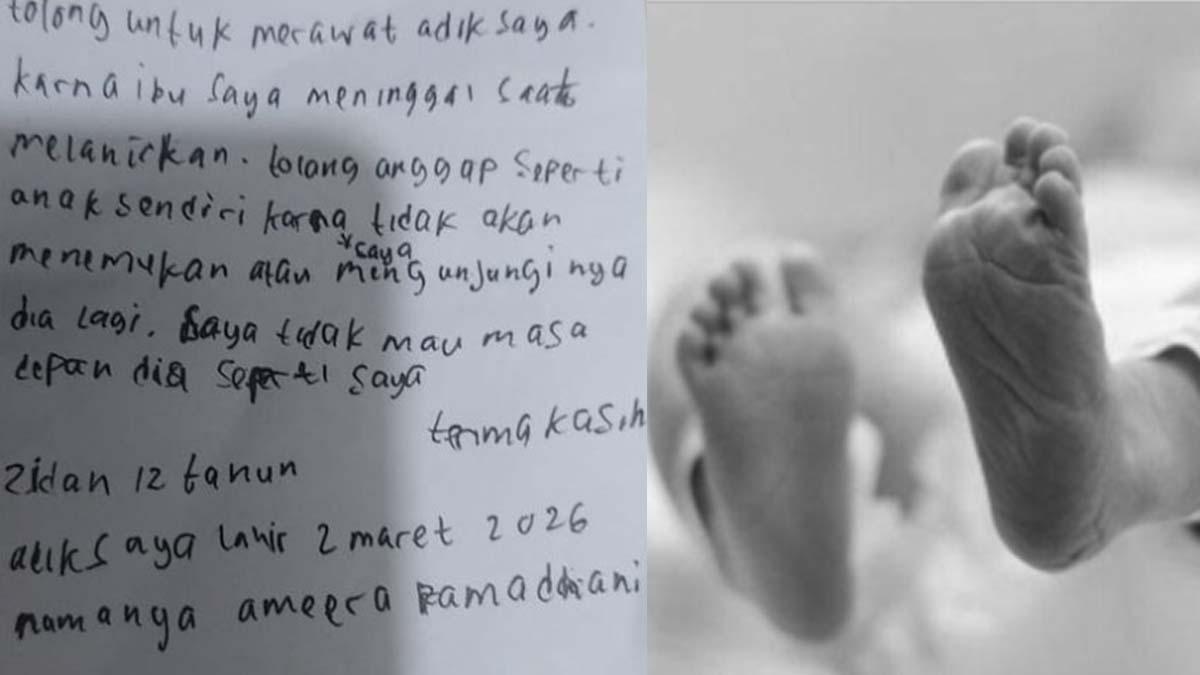 tolong untuk merawat adik saya.
karna ibu saya meninggal saat
melahirkan. tolong anggap seperti
anak sendiri karna tidak akan
saya
menemukan atau mengunjungi nya
dia lagi. saya tidak mau masa
depan dia seperti saya
terima kasih
Zidan 12 tahun
adik saya lahir 2 maret 2026
namanya ameera ramaddiani